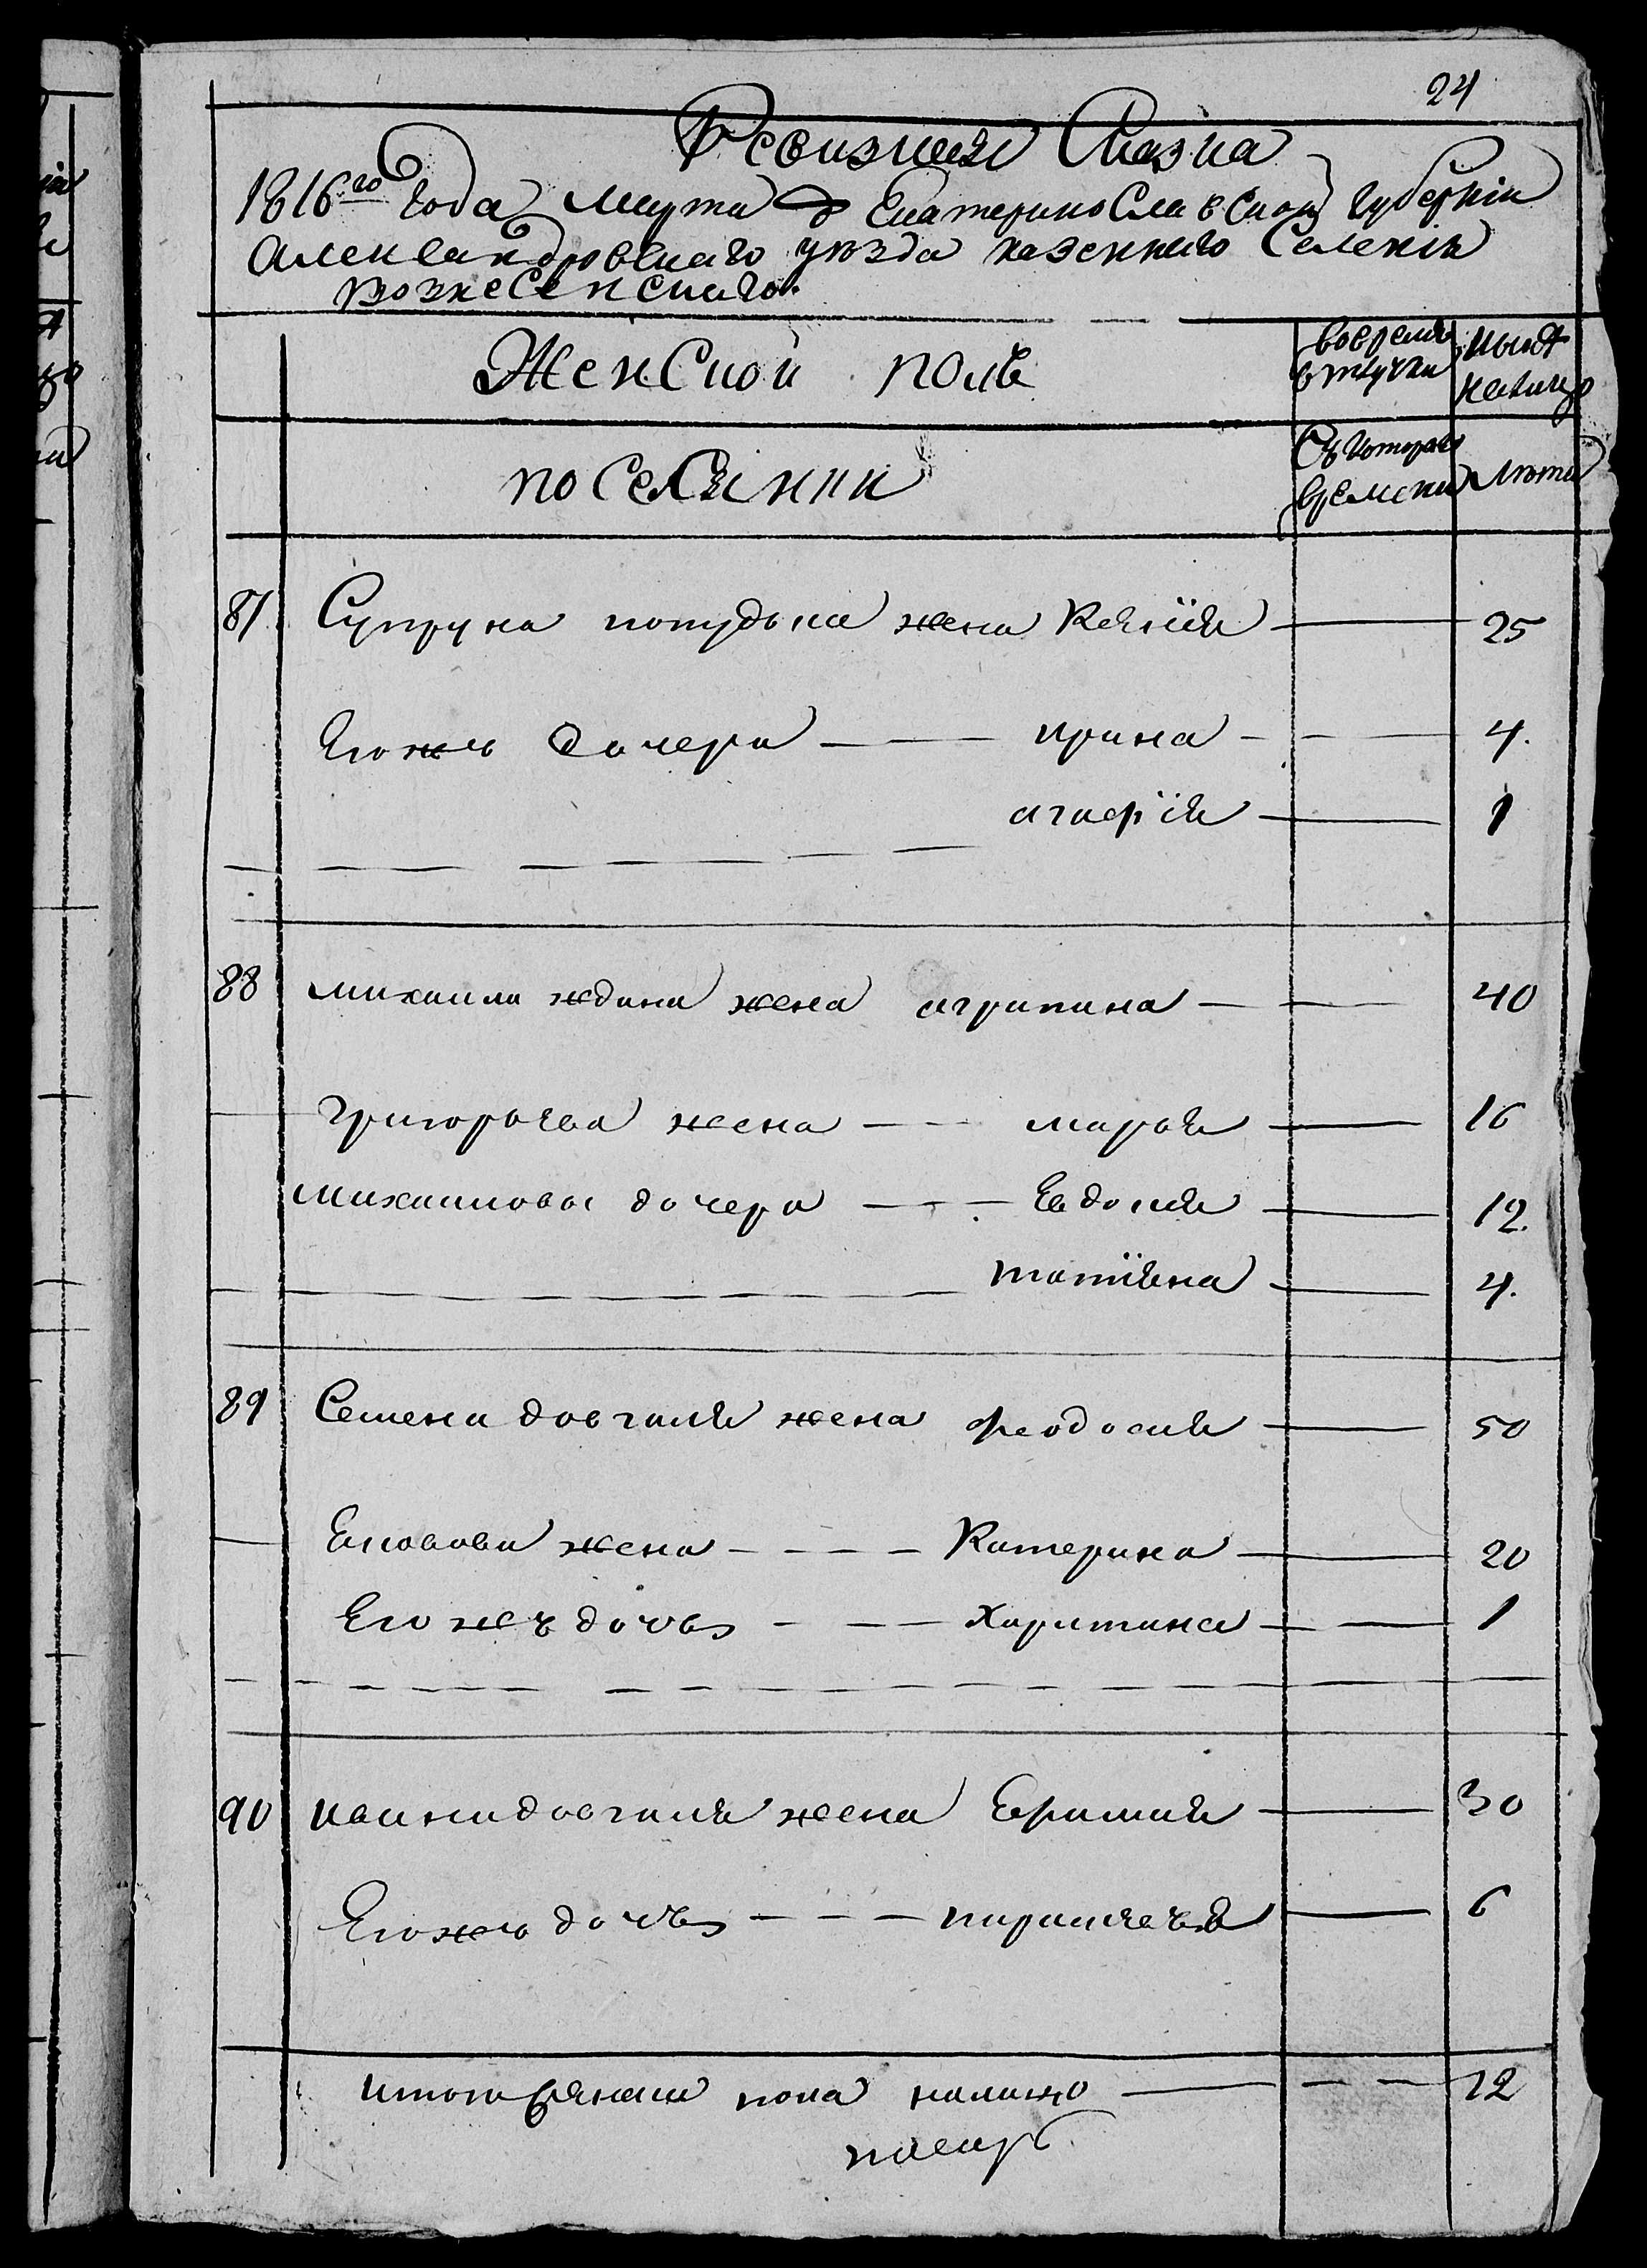 24
Ревизкая Сказка
1816го года Марта Екатеринославской губернiи
Александровскаго уѣзда казеннаго Селенiя
вознесенскаго.
Женской полъ
вовремя
отлучки
ныне
налицо
поселянки
Съ котораго
времени
лета
87 Супруна попудька жена Ксенiя 25
Его жъ дочери ирина 4.
агафiя 1
88 михаила ждана жена агрипина 40
григорьева жена марья 16
михаиловы дочери Евдокия 12.
татiяна 4.
89 Семена довгаля жена феодосия 50
жена Катерина 20
Его жъ дочь Харитина 1
90 ивана довгаля жена 30
Его жъ дочь 6
итого женска пола налицо 12